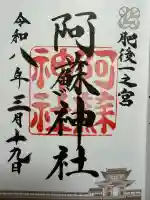 肥後一之宮
阿蘇神社
阿蘇
神社
令和八年三月十九日